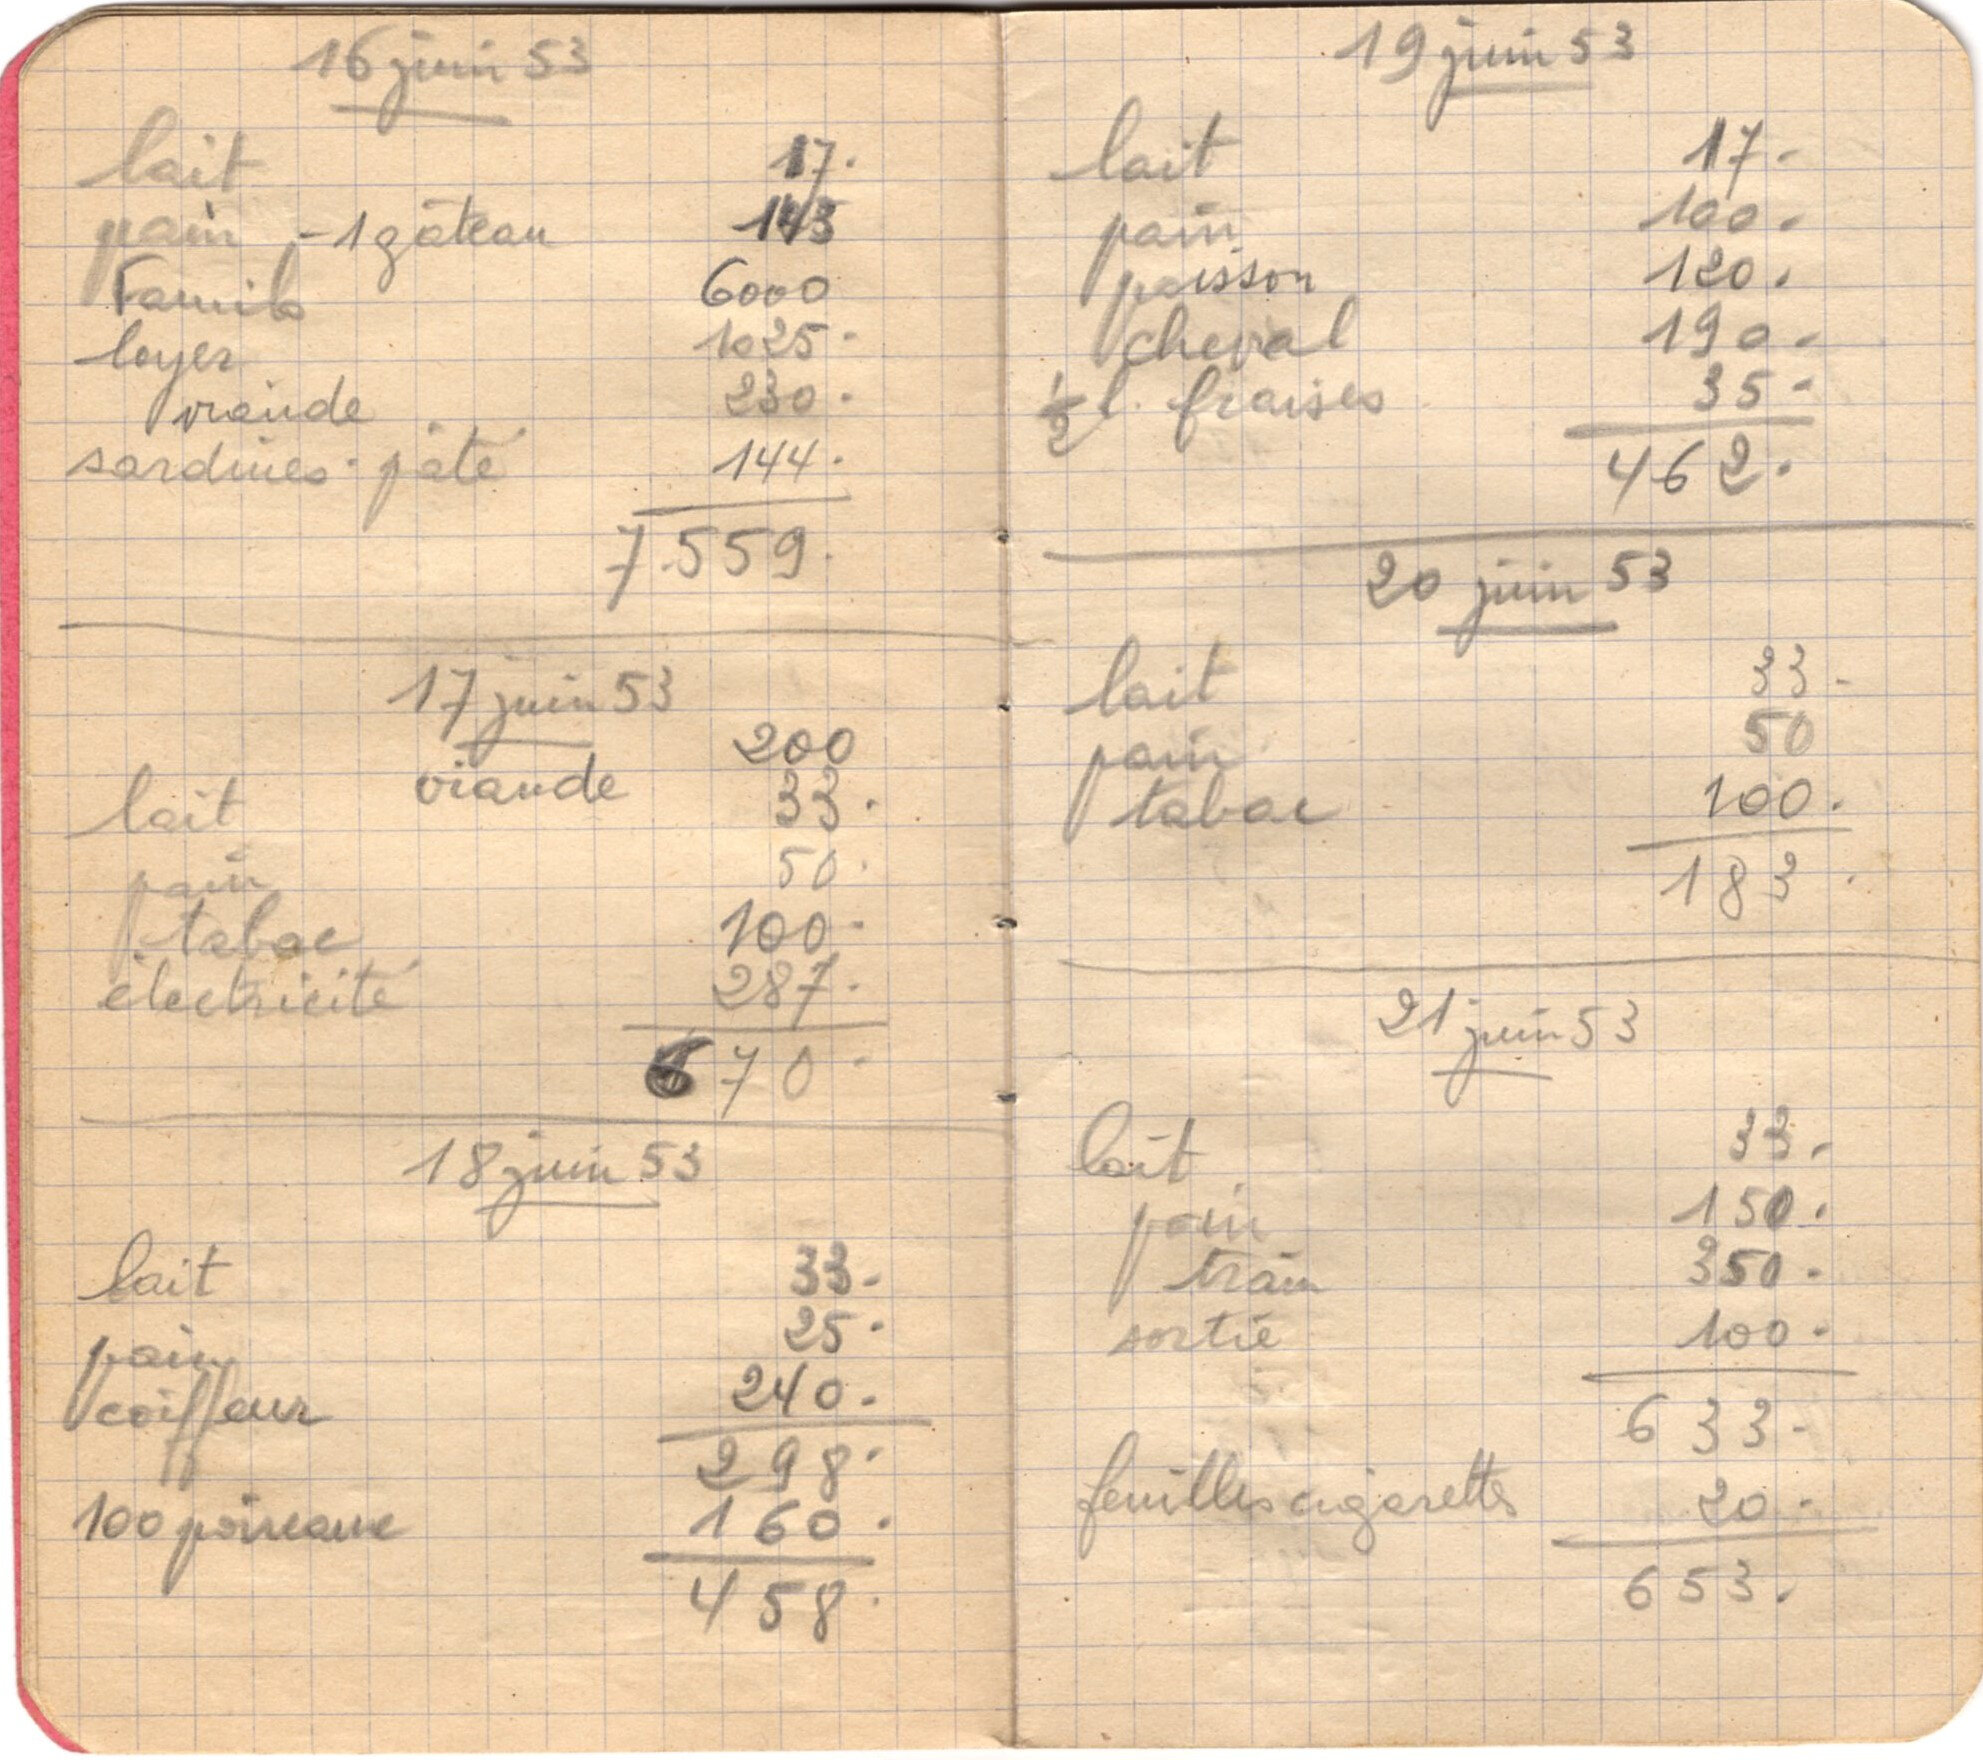 16 juin 53
lait 17.
pain - 1 gâteau 143
Famib 6000
loyer 1025.
viande 230.
sardines. pâté 144.
7.559.
17 juin 53
viande 200
lait 33.
pain 50.
tabac 100.
électricité 287.
670.
18 juin 53
lait 33.
pain 25.
coiffeur 240.
298.
100 poireaux 160.
458.
19 juin 53
lait 17.
pain 100.
poisson 120.
cheval 190.
1/2 l. fraises 35.
462.
20 juin 53
lait 33.
pain 50
tabac 100.
183.
21 juin 53
lait 33.
pain 150.
train 350.
sortie 100.
633.
feuilles cigarettes 20.
653.